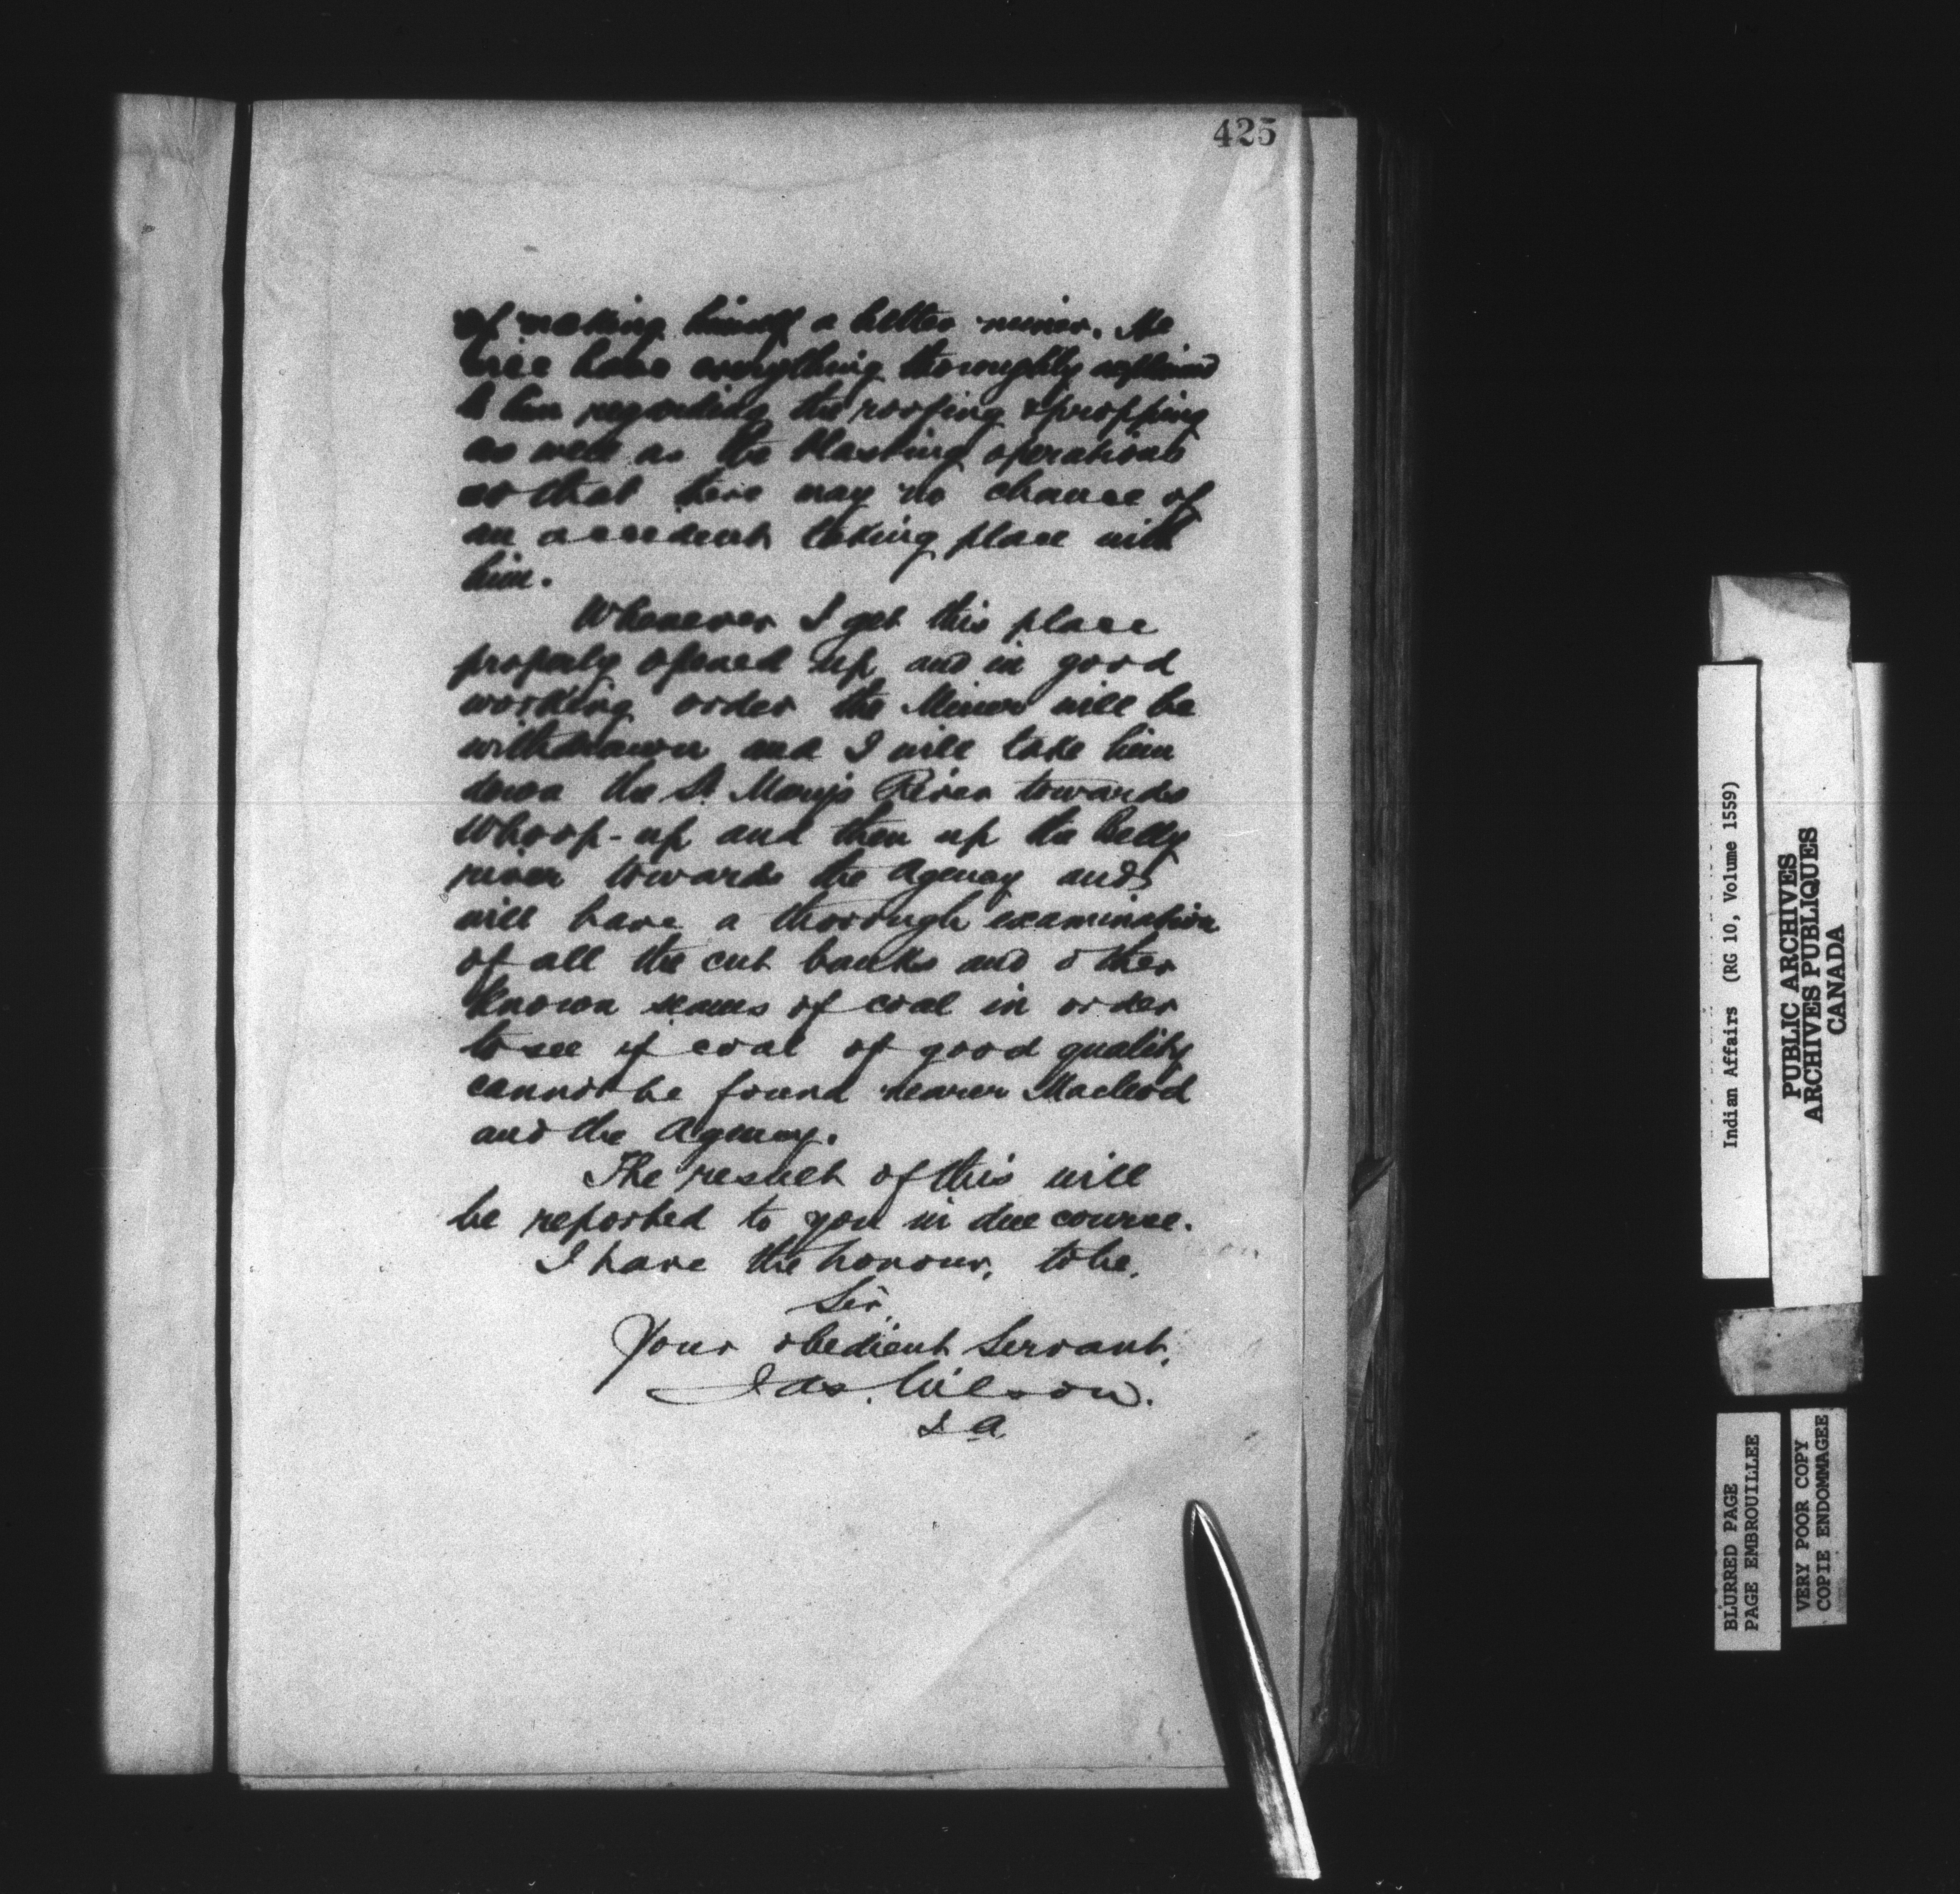 425
of making himself a better miner. He
will have everything thoroughly explained
to him regarding the roofing & propping
as well as the blasting operations
so that there may no chance of
an accident taking place with
him.
Whenever I get this place
properly opened up and in good
working order the Miner will be
withdrawn and I will take him
down the St. Mary's River towards
Whoop-up and then up the Belly
river towards the Agency and
will have a thorough examination
of all the cut banks and other
known seams of coal in order
to see if coal of good quality
cannot be found nearer Macleod
and the Agency.
The result of this will
be reported to you in due course.
I have the honour, to be,
Sir,
Your obedient Servant,
Jas. Wilson.
I A
Indian Affairs (RG 10, Volume 1559)
PUBLIC ARCHIVES
ARCHIVES PUBLIQUES
CANADA
BLURRED PAGE
PAGE EMBROUILLEE
VERY POOR COPY
COPIE ENDOMMAGEE